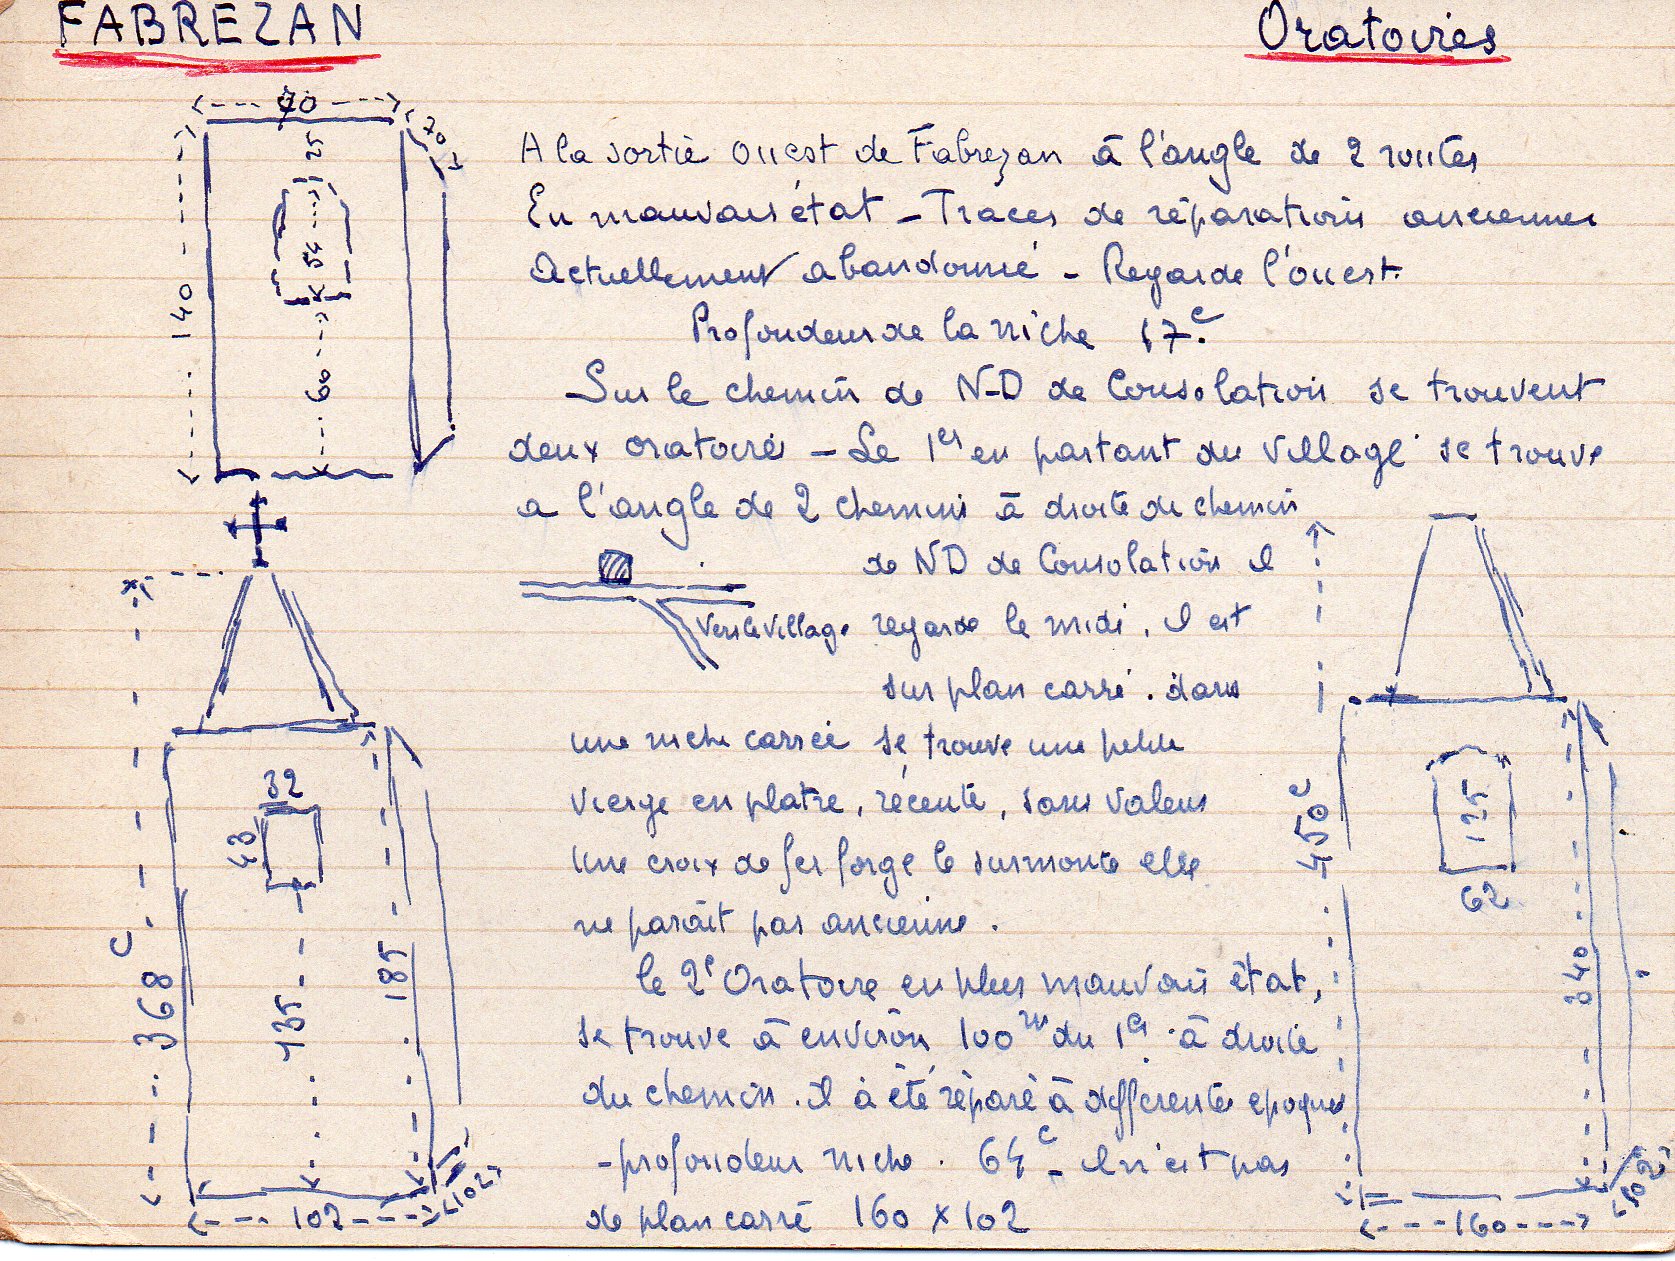 FABREZAN
Oratoires
70
70
25
54
140
60
A la sortie ouest de Fabrezan à l'angle de 2 routes
En mauvais état - Traces de réparations anciennes
Actuellement abandonné - Regarde l'ouest.
Profondeur de la niche 17c.
Sur le chemin de N-D de Consolation se trouvent
deux oratoires - Le 1er en partant du village se trouve
a l'angle de 2 chemins à droite du chemin
de ND de Consolation il
vers le village
regarde le midi, il est
sur plan carré. dans
une niche carrée se trouve une petite
vierge en platre, récente, sans valeur
une croix de fer forgé le surmonte elle
ne parait pas ancienne.
le 2e Oratoire en plus mauvais état,
se trouve à environ 100m du 1er à droite
du chemin. il a été réparé à differentes epoques
-profondeur niche. 64c - Il n'est pas
de plan carré 160 x 102
32
43
368c
135
185
102
102
450c
125
62
340
160
102